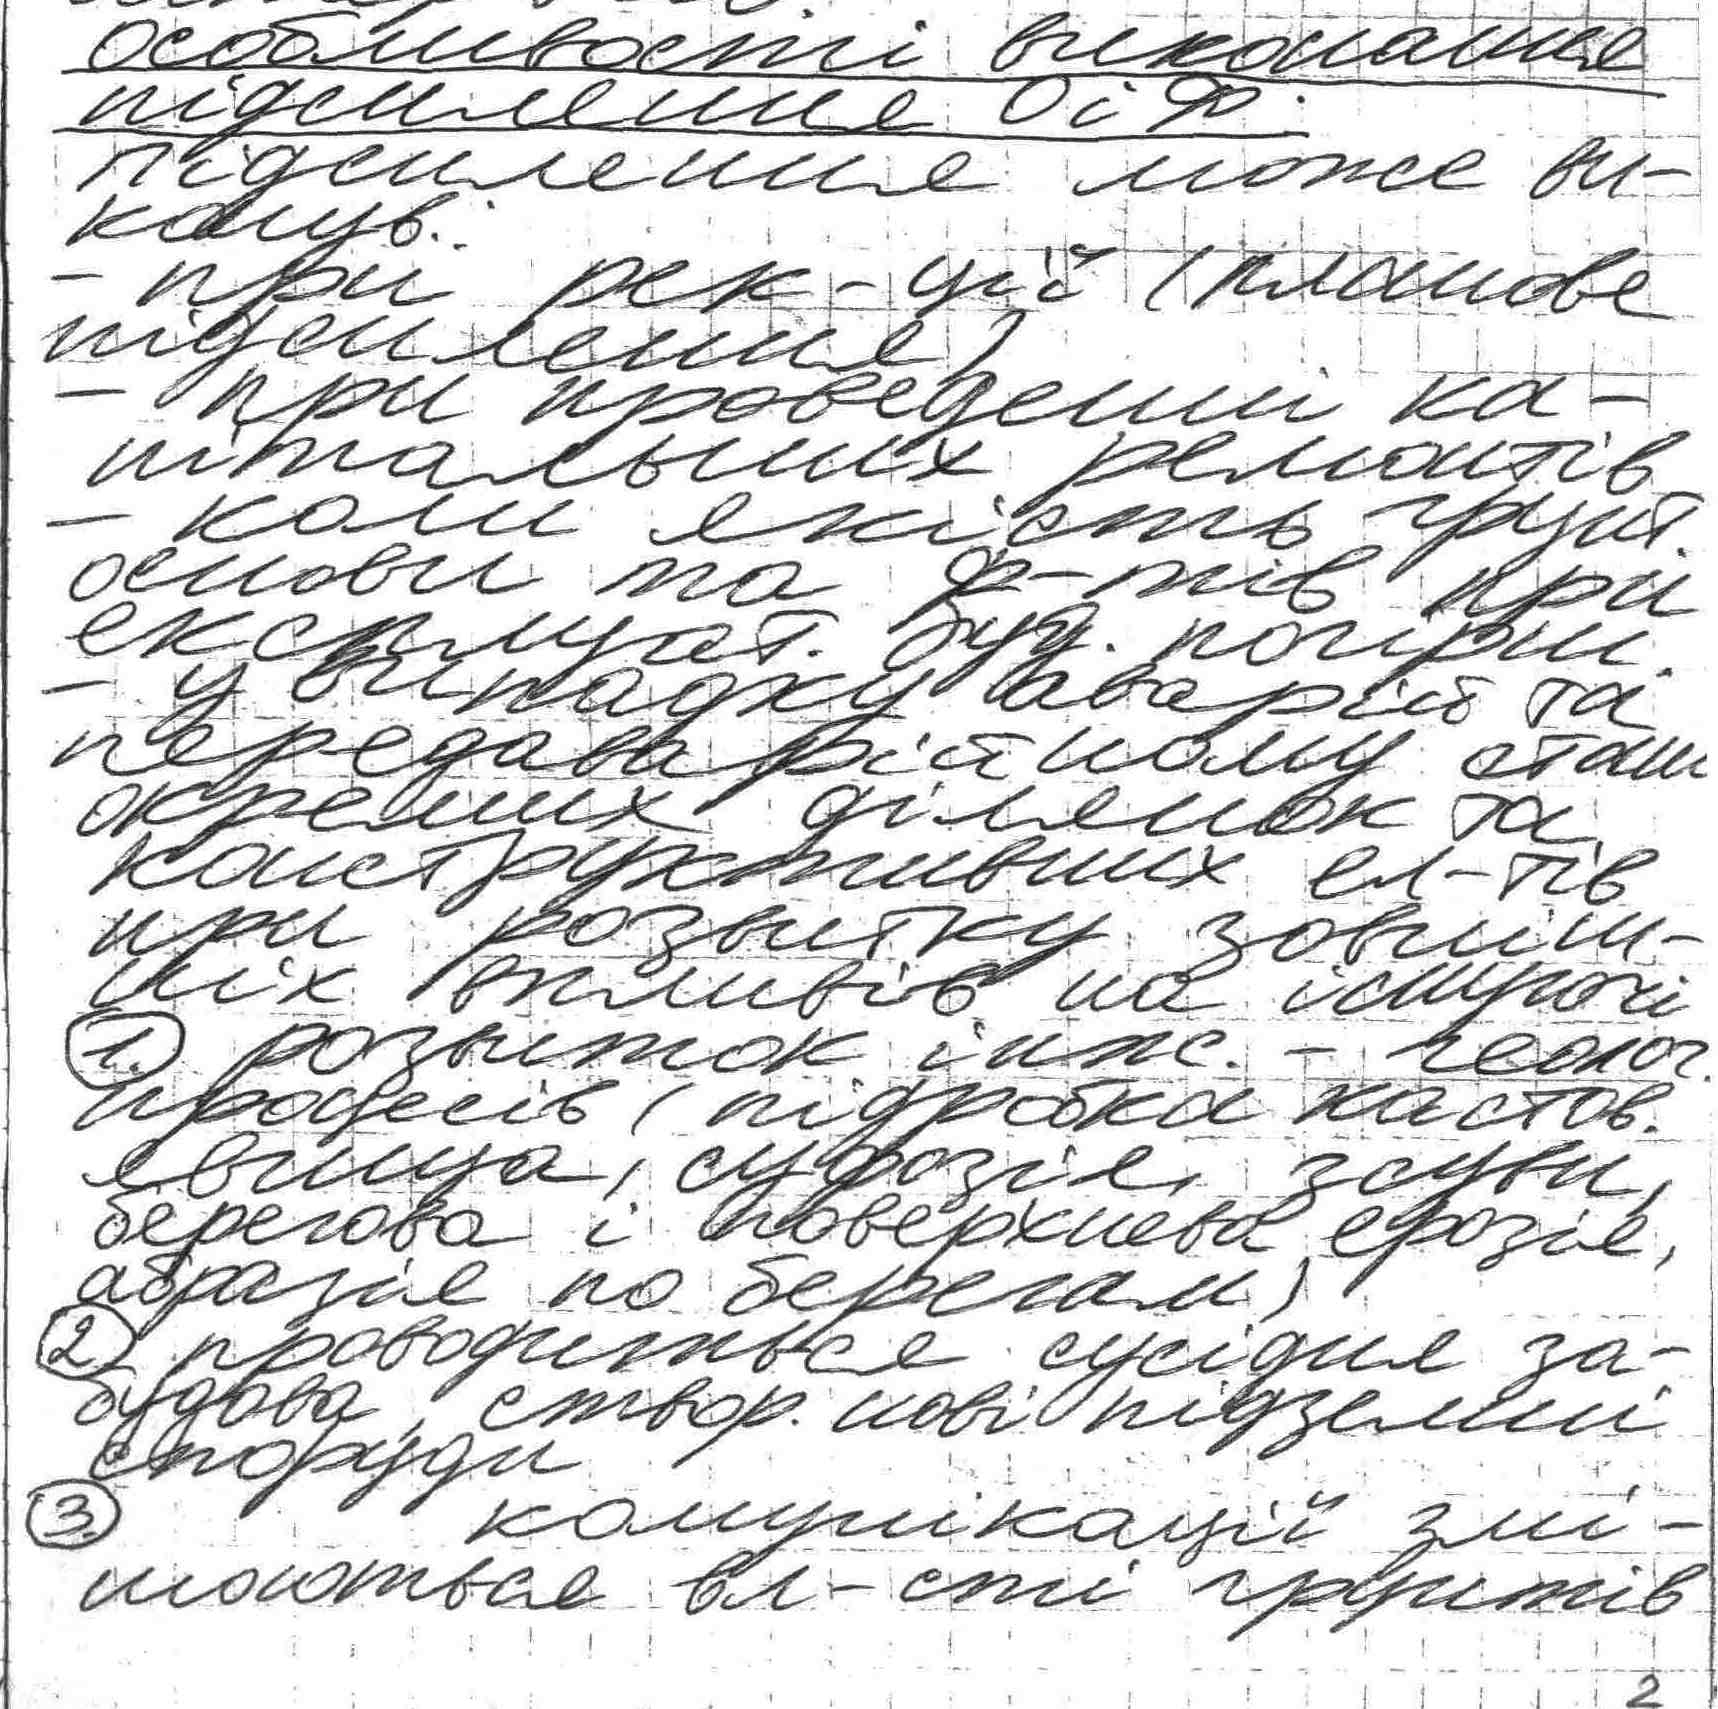 особливості виконання
підсилення О і Ф.
Підсилення може ви-
конув.:
- при рек-ції (планове
підсилення)
- при проведенні ка-
пітальних ремонтів
- коли якість грунт.
основи та ф-тів при
експлуат. буд. погірш.
- у випадку аварій та
передаварійному стані
окремих ділянок та
конструктивних ел-тів
при розвитку зовніш-
ніх впливів на існуючі
1. розвиток інж. - геолог.
процесів (підробка карстов.
явища, суфозія, зсуви,
берегова і поверхнева ерозія,
абразія по берегам)
2. проводиться сусідня за-
будова, створ. нові підземні
споруди
3. комунікацій змі-
нюються вл-сті грунтів
2